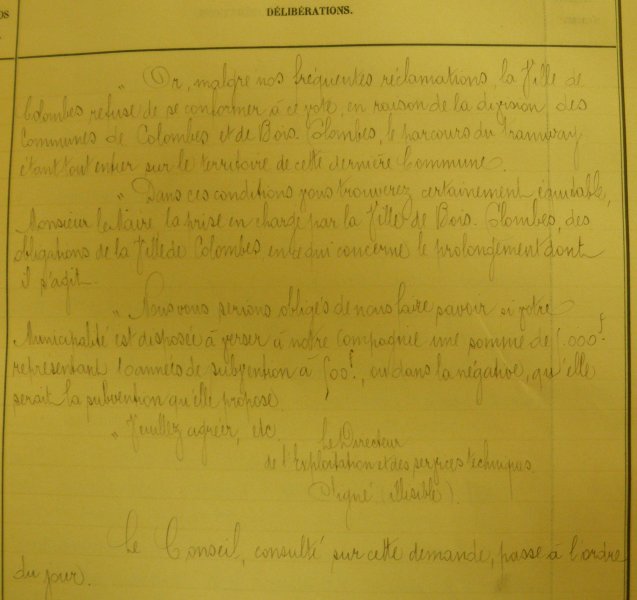 DÉLIBÉRATIONS.
" Or, malgré nos fréquentes réclamations, la Ville de
Colombes refuse de se conformer à ce vote, en raison de la division des
Communes de Colombes et de Bois-Colombes, le parcours du tramway
étant tout entier sur le territoire de cette dernière Commune.
" Dans ces conditions vous trouverez certainement équitable,
Monsieur le Maire la prise en charge par la Ville de Bois-Colombes, des
obligations de la Ville de Colombes en ce qui concerne le prolongement dont
il s'agit.
" Nous vous serions obligés de nous faire savoir si votre
Municipalité est disposée à verser à notre Compagnie une somme de
représentant 10 années de subvention à 500f, ou dans la négative, qu'elle
serait la subvention qu'elle propose.
" Veuillez agréer, etc
Le Directeur
de l'Exploitation et des services techniques.
Signé (Illisible).
Le Conseil, consulté sur cette demande, passe à l'ordre
du jour.